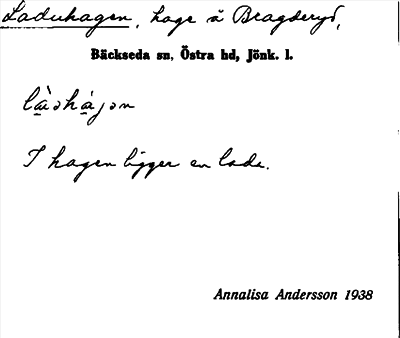 Laduhagen, hage å Bragderyd,
Bäckseda sn, Östra hd, Jönk. l.
I hagen ligger en lada.
Annalisa Andersson 1938